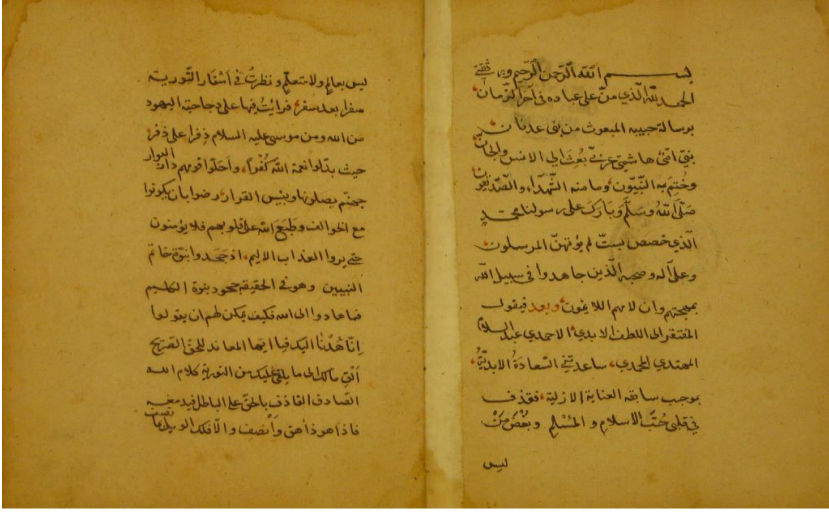 بسم الله الرحمن الرحيم وبه ثقتي
الحمد لله الذي من على عباده في آخر الزمان
برسالة حبيبه المبعوث من بني عدنان
نبي امي هاشمي عربي بعث الى الانس والجان
وختم به النبيون وما منه الشهداء والصديقون
صلى الله وسلم وبارك على رسولنا محمد
الذي خصص بست لم يؤتهن المرسلون
وعلى آله وصحبه الذين جاهدوا في سبيل الله
بمهجتهم وان لامهم اللايمون وبعد فيقول
المفتقر الى اللطف الابدي الاحمدي عبد السلام
المهتدي المحمدي ساعدتني السعادة الابدية
بموجب سابقه العناية الازلية فقذف
في قلبي حب الاسلام والمسلم وبغض من
ليس
ليس بعالم ولا متعلم ونظرت في اسفار التورية
سفرا بعد سفر فرايت فيها على دجاجة اليهود
من الله ومن موسى عليه السلام ذفرا على ذفر
حيث بدلوا نعمة الله كفرا واحلوا قومهم دار البوار
جهنم يصلونها وبئس القرار ورضوا بان يكونوا
مع الخوالف وطبع الله على قلوبهم فلا يؤمنون
حتى يروا العذاب الاليم اذ جحدوا نبوة خاتم
النبيين وهو في الحقيقة جحود بنوة الكليم
فما هادوا الى الله فكيف يمكن لهم ان يقولوا
انا هدنا اليك فيا ايها المعاند للحق الصريح
الق مالك الى ما يلقى عليك من التورية كلام الله
الصادق القاذف بالحق على الباطل فيدمغه
فاذا هو ذاهق وانصف والا فلك الويل مما تصف